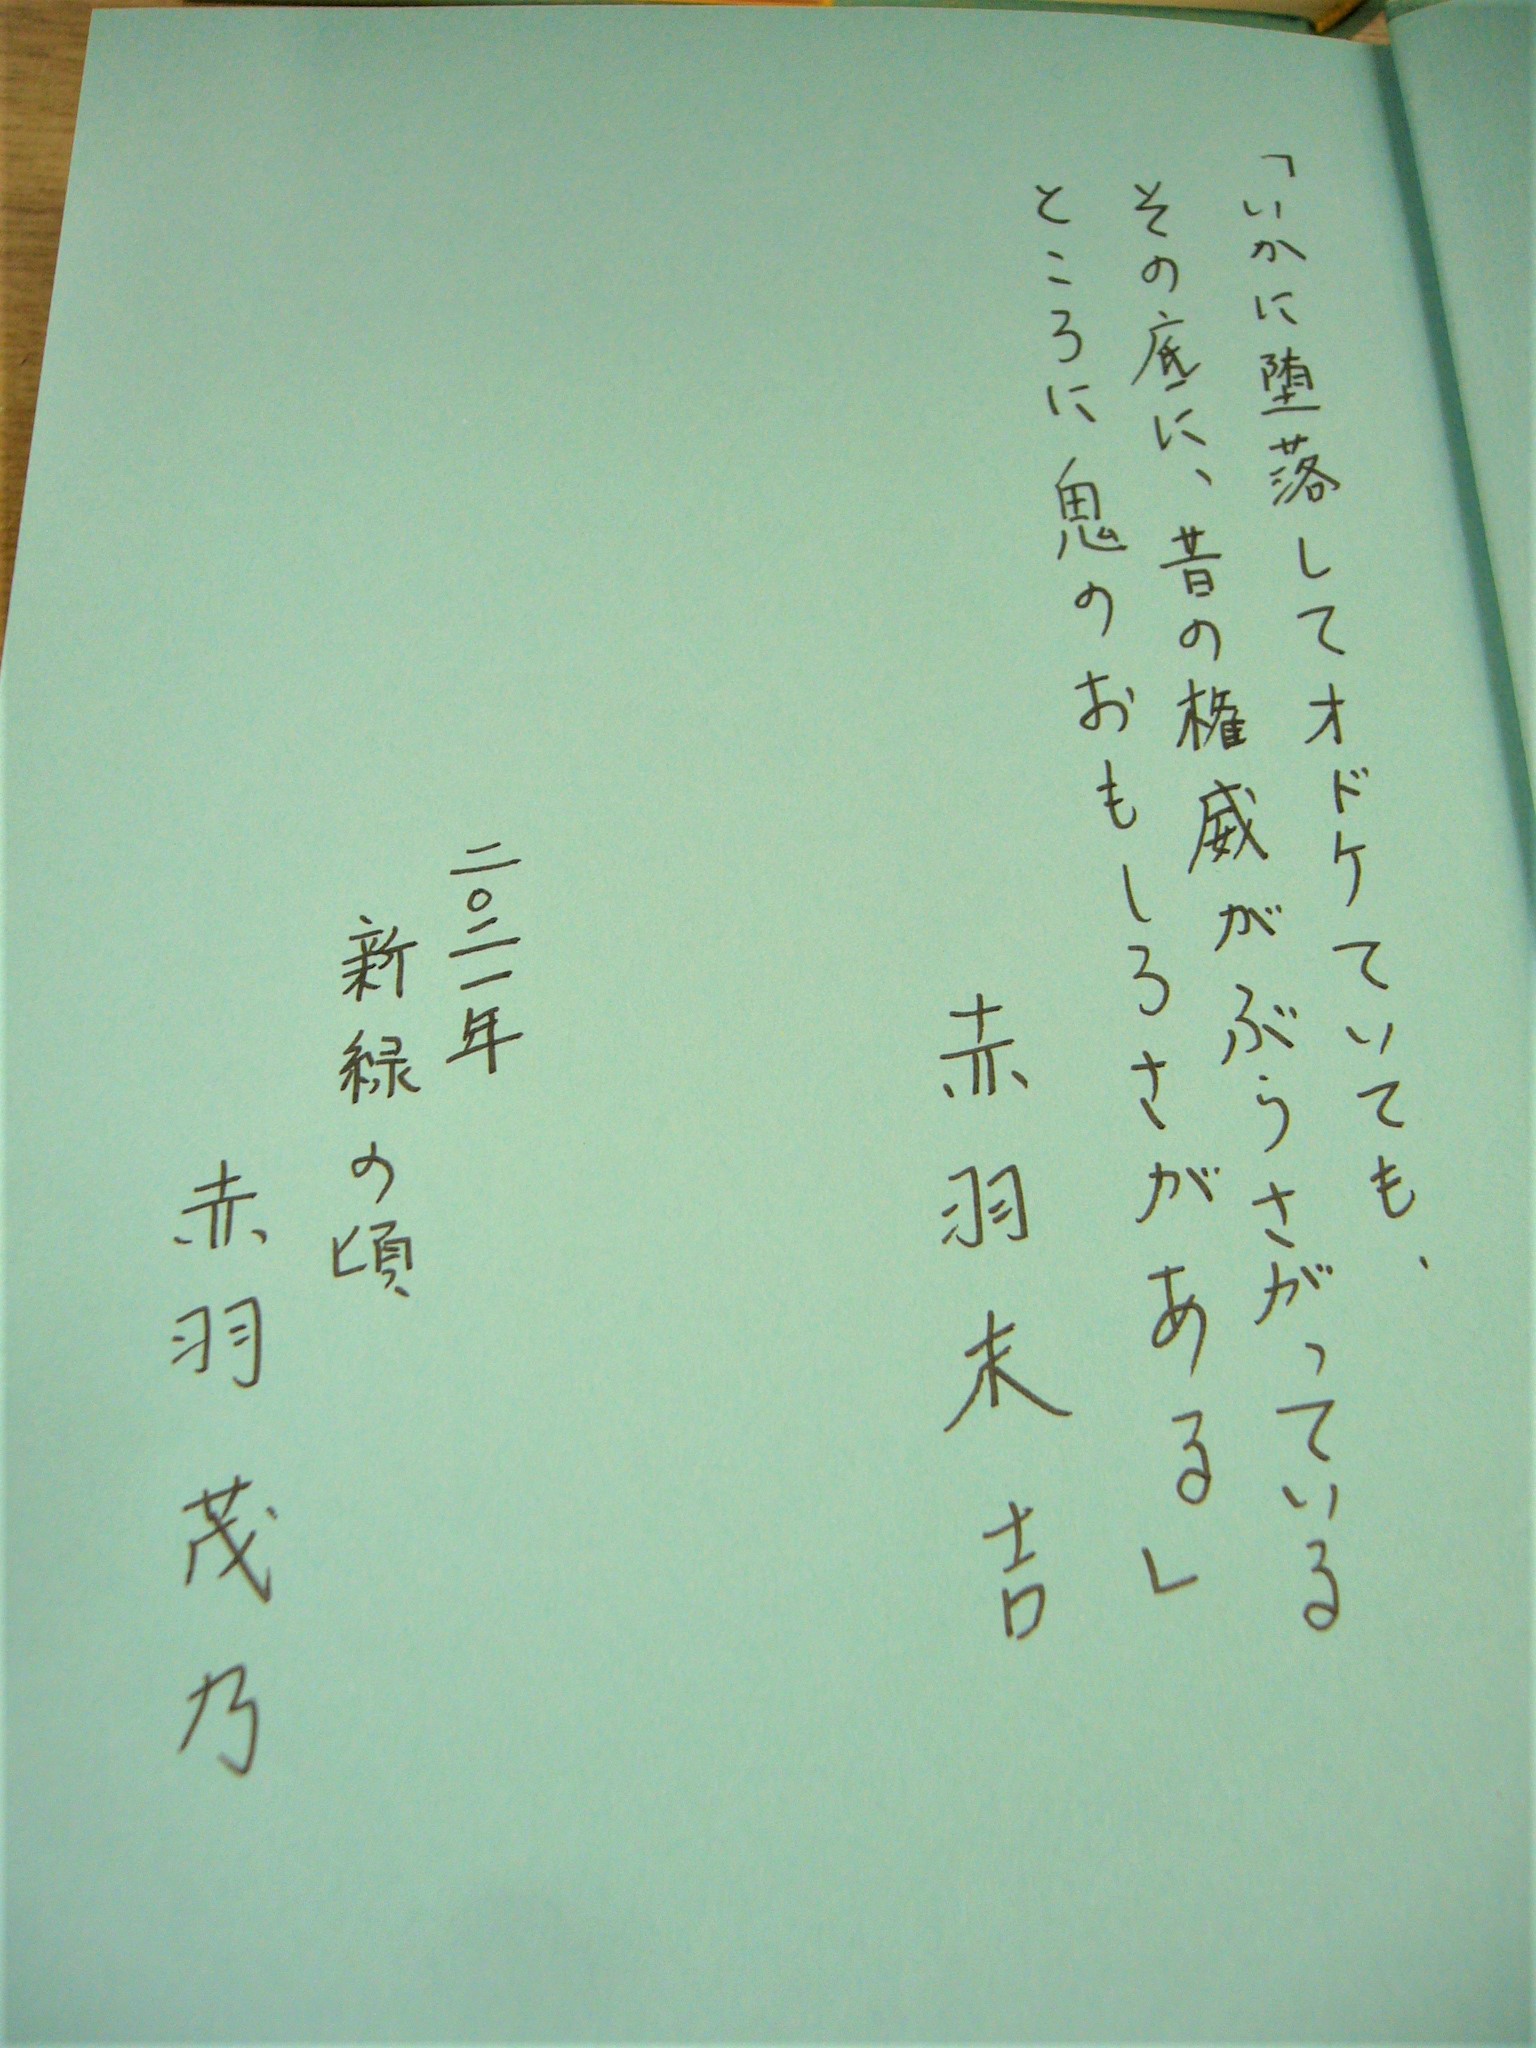 「いかに堕落してオドケていても、
その底に、昔の権威がぶらさがっている
ところに鬼のおもしろさがある」
赤羽末吉
二〇二一年
新緑の頃
赤羽茂乃